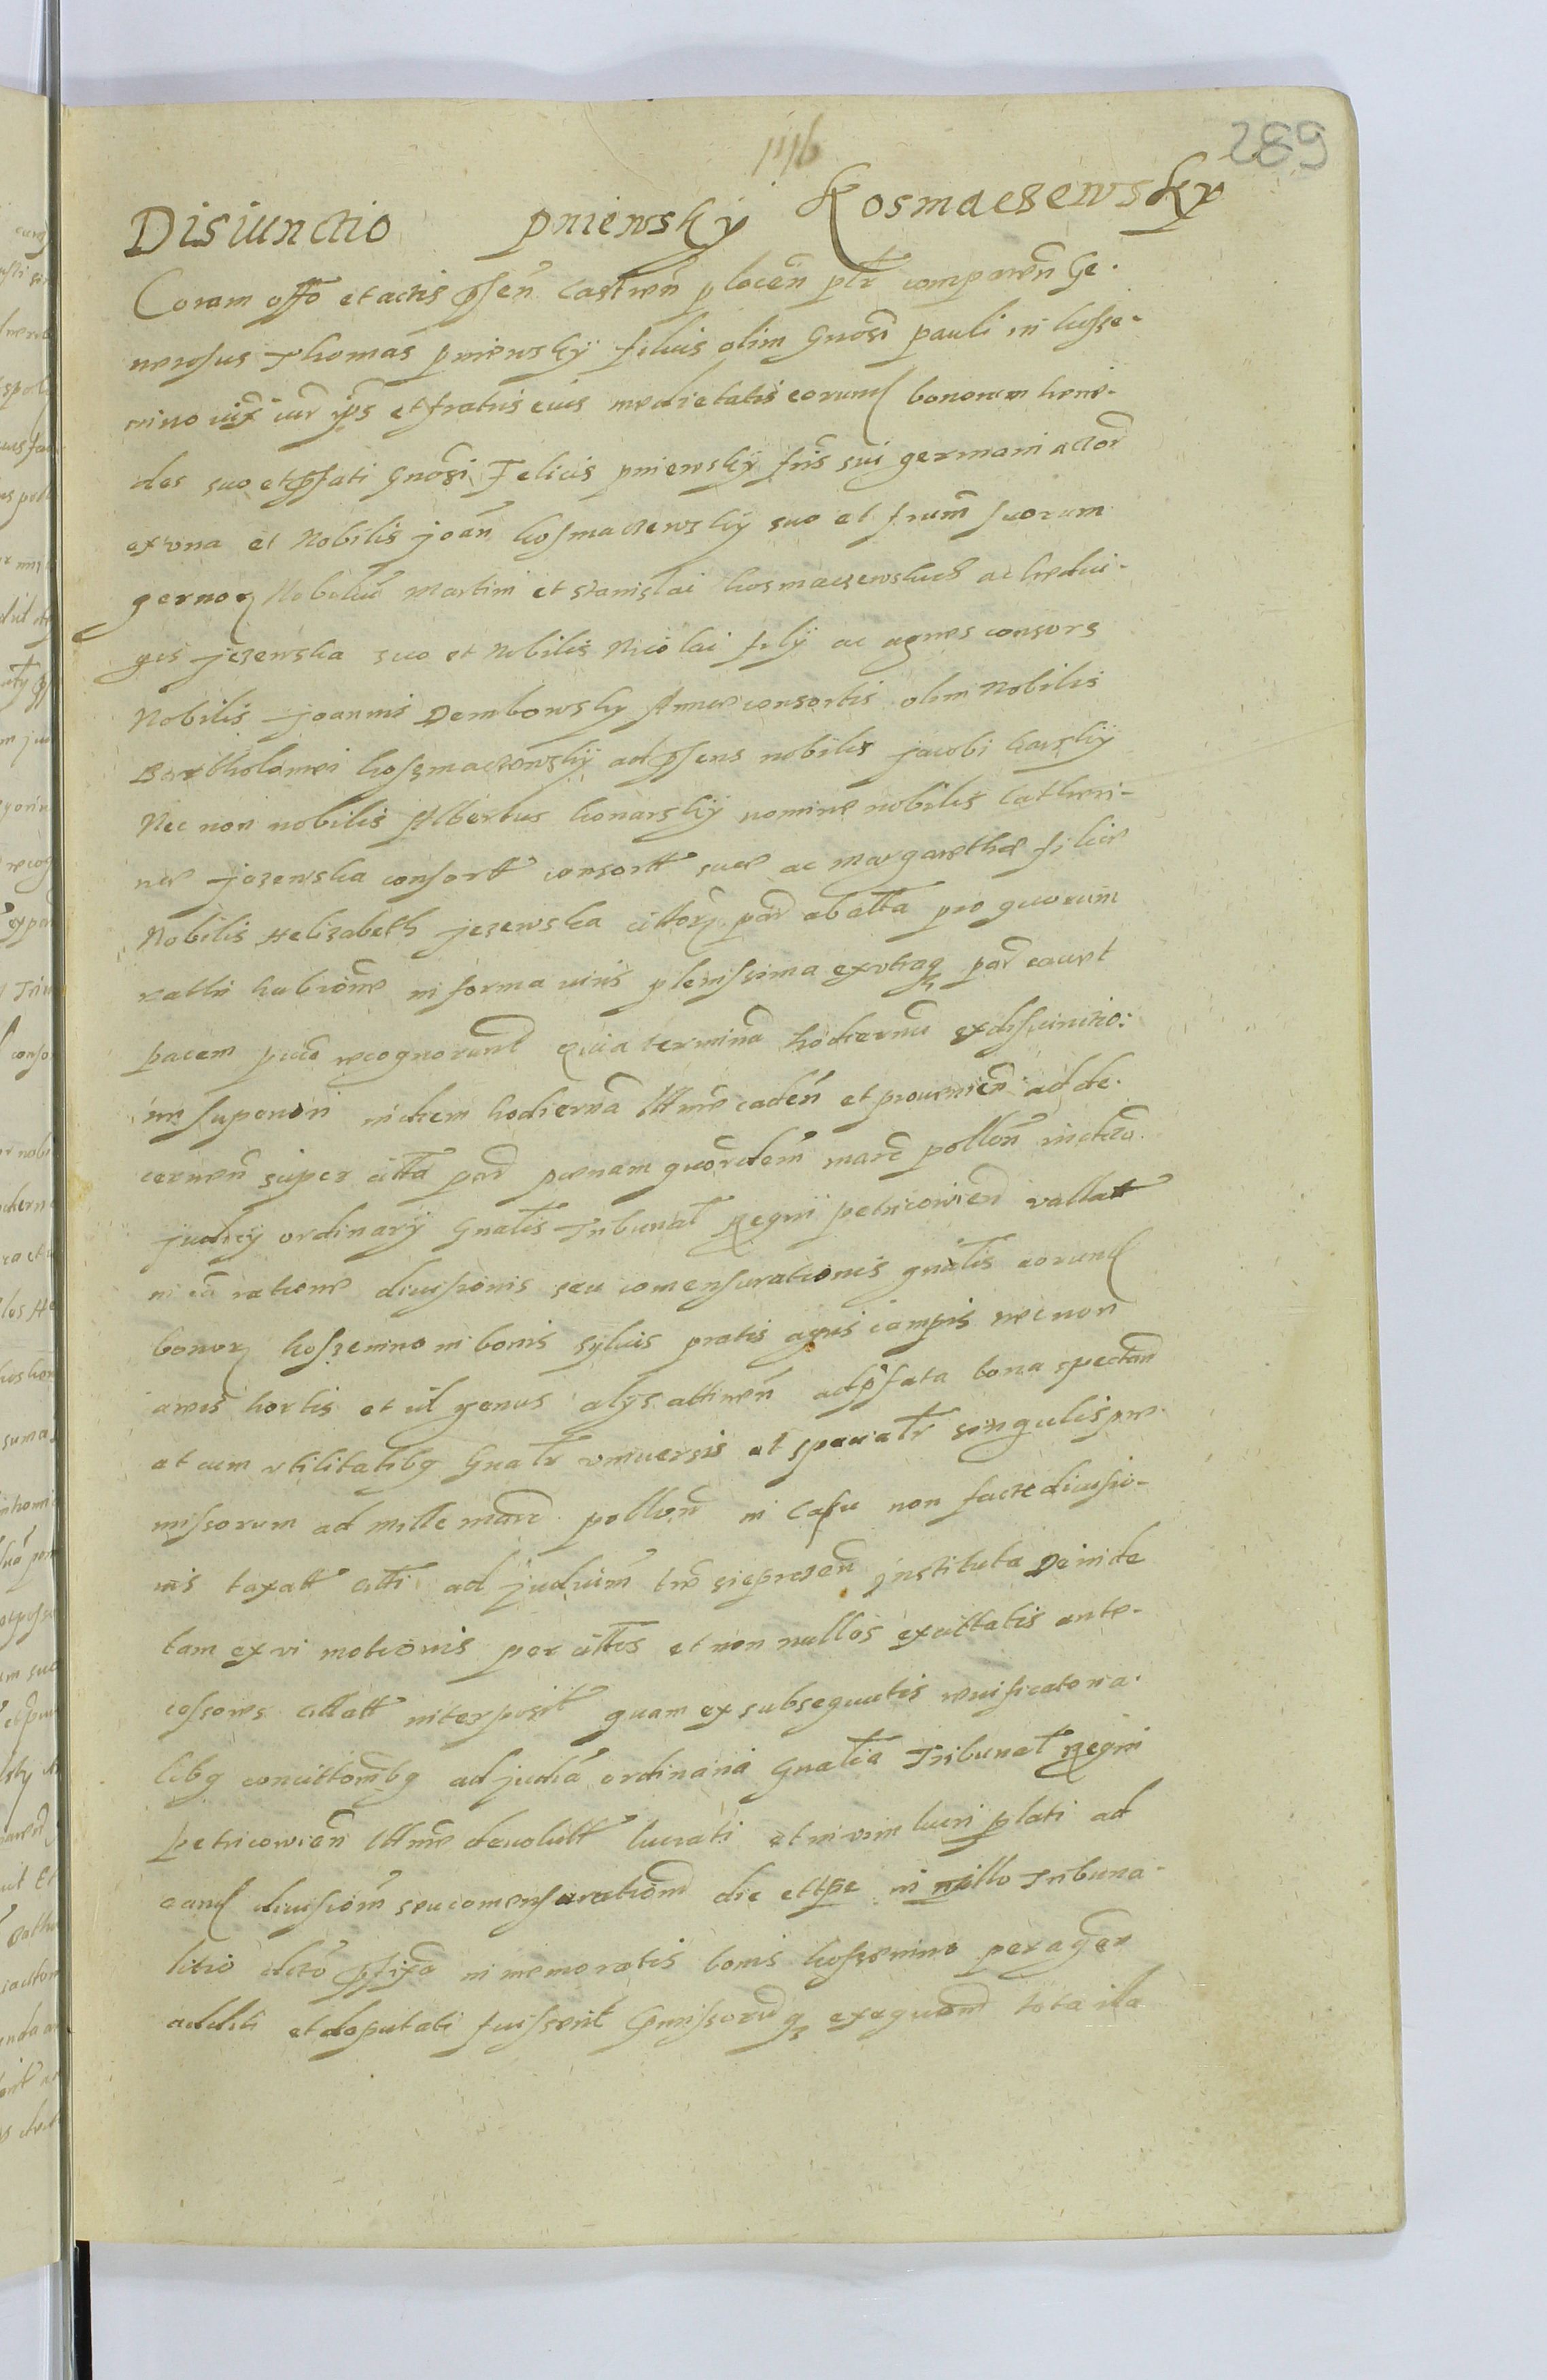 1116
289
Disiunctio pniewsky Kosmaczewsky
Coram offo et actis pñsen Castren plocen psr comparen Ge.
nerosus Thomas pniewskÿ filius olim Gnosi pauli in kosse-
mino et fratris eius medietatis eorund bonorum here-
des suo et pfati Gnosi Felicis pniewskÿ fris sui germani actor
ex vna et Nobilis joan kosmaczewskÿ suo et frum suorum
gernor Nobiliu Martini et Stanislai kosmaczewskich ac hedui-
gis jezewska suo et Nobilis Nicolai filÿ ac agnes consors
Nobilis joannis Dembowsky Annae consortis olim Nobilis
Bartholomei kossmaczewskÿ ad psens nobilis jacobi karskÿ
Nec non nobilis Albertus konarskÿ nomine nobilis Catheri-
nae jezewska consortt consortt suae ac Margarethae filiae
Nobilis Helizabeth jezewska cittor par ab altta pro quorum
rathi habitione in forma iuris plenissima ex vtraq par cauet
pacem recognorunt Quia terminu hodiernu ex disiunctio:
in diem hodierna lttme caden et prouenien ad de.
cernen super citta par paenam quordem marc pollon in dicto
judicy ordinarÿ Gnalis Tribunal Regni petricowien vallatt
in ea ratione diuisionis seu comensurationis gnalis eorund
bonor koszemino in bonis syluis pratis agris campis necnon
areis hortis et id genus alÿs attinen ad pfata bona spectan
et cum vtilitatibq Gnalr vniuersis et spaciatr singulis pre.
missorum ad mille marc pollon in Casu non factae diuisio-
nis taxatt citti ad judicium tre sieprecen instituta Deinde
tam ex vi motionis per cittos et non nullos ex cittatis ante-
cessores allatt interposit quam ex subsequutis reuificatoria.
libq concittonibq ad judicia ordinaria Gnalia Tribunal Regni
petricowien lttme deuolutt lucrati et in vim lucri plati ad
eand diuisiom seu comensurationem die et tpe in illo Tribuna-
litio dcto pfixa in memoratis bonis koszemino peragen
additi et deputati fuissent pmissoruq exequuom tota illa